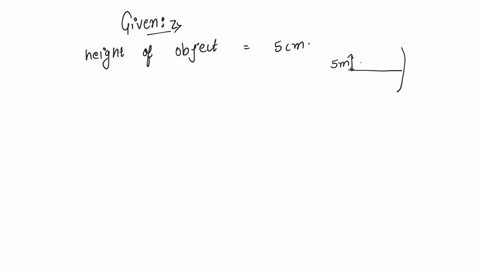 Given:
height of object = 5 cm.
5m